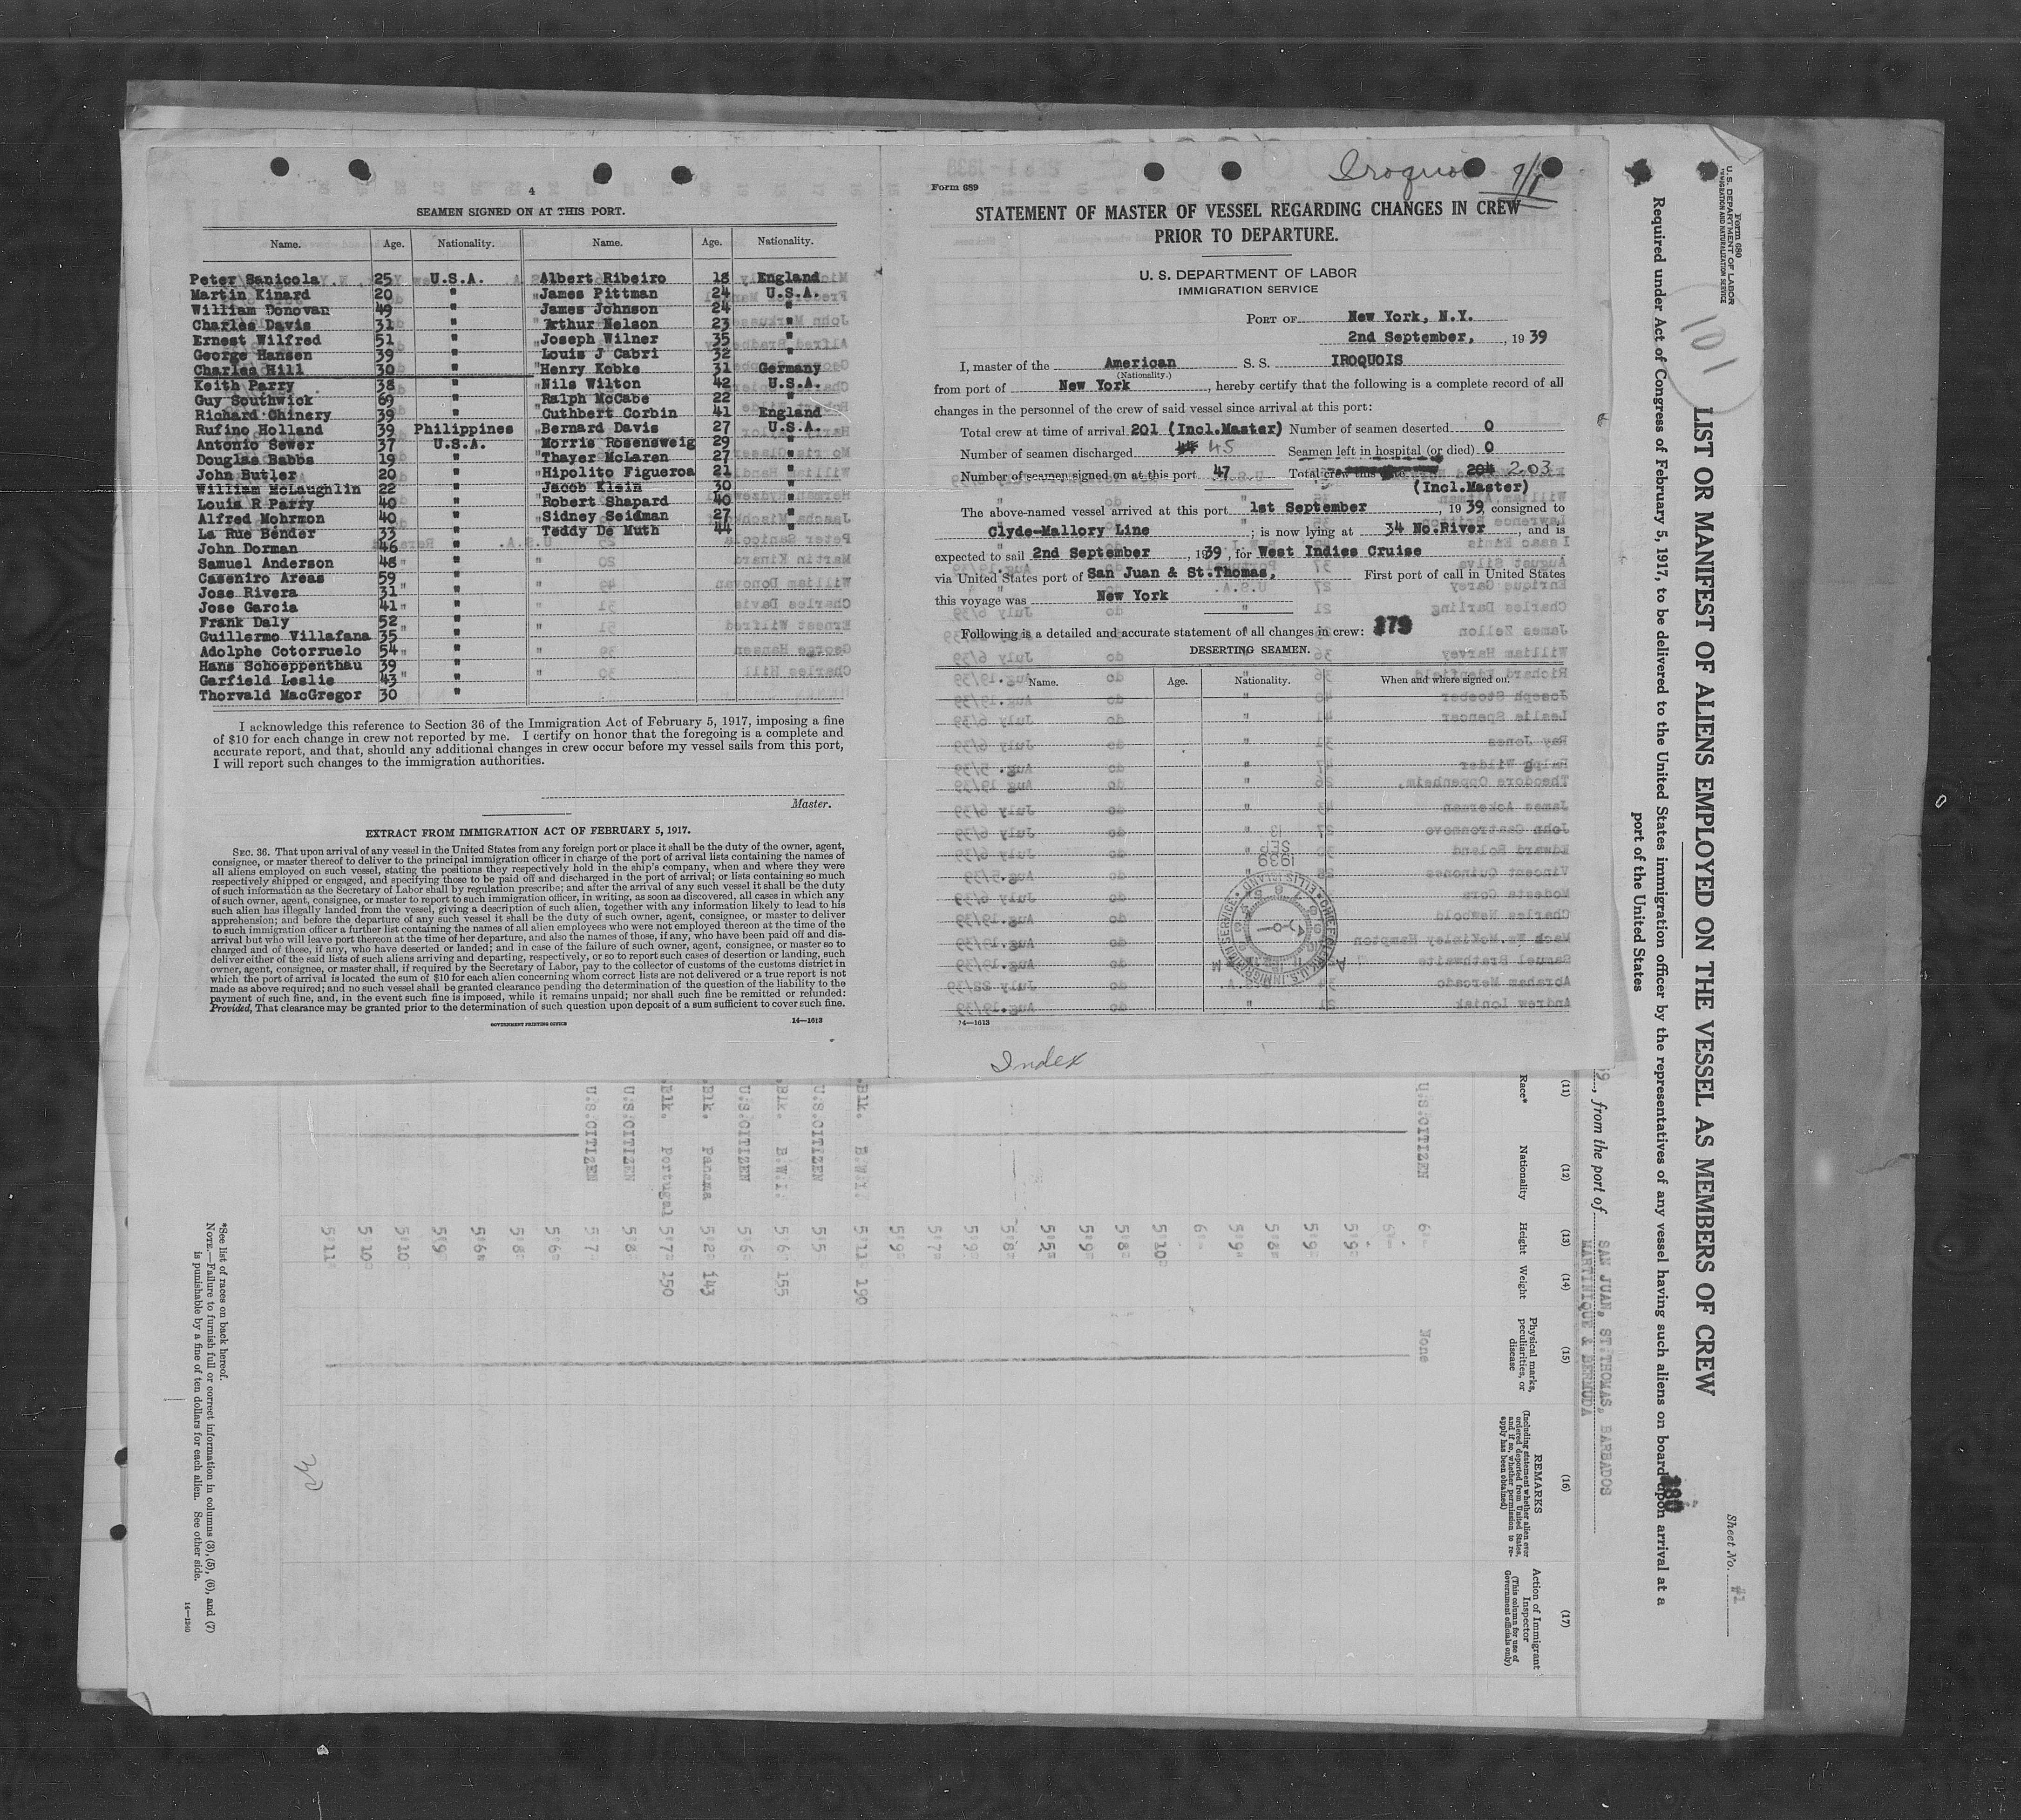 4
SEAMEN SIGNED ON AT THIS PORT.
Name. Age. Nationality. Name. Age. Nationality.
Peter Sanicola 25 U.S.A. Albert Ribeiro 18 England
Martin Kinard 20 " "James Pittman 24 U.S.A.
William Donovan 49 " James Johnson 24 "
Charles Davis 31 " "Arthur Nelson 23 "
Ernest Wilfred 51 " "Joseph Wilner 35 "
George Hansen 39 " Louis J Cabri 32 "
Charles Hill 30 " "Henry Kobke 31 Germany
Keith Parry 38 " "Nils Wilton 42 U.S.A.
Guy Southwick 69 " Ralph McCabe 22 "
Richard Chinery 39 " "Cuthbert Corbin 41 England
Rufino Holland 39 Philippines "Bernard Davis 27 U.S.A.
Antonio Sewer 37 U.S.A. Morris Rosensweig 29 "
Douglas Babbs 19 " "Thayer McLaren 27 "
John Butler 20 " "Hipolito Figueroa 21 "
William McLaughlin 22 " Jacob Klein 30 "
Louis R Parry 40 " "Robert Shapard 40 "
Alfred Mohrmon 40 " "Sidney Seidman 27 "
La Rue Bender 33 " Teddy De Muth 44 "
John Dorman 46 "
Samuel Anderson 48 "
Caseniro Areas 59 "
Jose Rivera 31 "
Jose Garcia 41 "
Frank Daly 52 "
Guillermo Villafana 35 "
Adolphe Cotorruelo 54 "
Hans Schoeppenthau 39 "
Garfield Leslie 43 "
Thorvald MacGregor 30 "
I acknowledge this reference to Section 36 of the Immigration Act of February 5, 1917, imposing a fine
of $10 for each change in crew not reported by me. I certify on honor that the foregoing is a complete and
accurate report, and that, should any additional changes in crew occur before my vessel sails from this port,
I will report such changes to the immigration authorities.
Master.
EXTRACT FROM IMMIGRATION ACT OF FEBRUARY 5, 1917.
SEC. 36. That upon arrival of any vessel in the United States from any foreign port or place it shall be the duty of the owner, agent,
consignee, or master thereof to deliver to the principal immigration officer in charge of the port of arrival lists containing the names of
all aliens employed on such vessel, stating the positions they respectively hold in the ship's company, when and where they were
respectively shipped or engaged, and specifying those to be paid off and discharged in the port of arrival; or lists containing so much
of such information as the Secretary of Labor shall by regulation prescribe; and after the arrival of any such vessel it shall be the duty
of such owner, agent, consignee, or master to report to such immigration officer, in writing, as soon as discovered, all cases in which any
such alien has illegally landed from the vessel, giving a description of such alien, together with any information likely to lead to his
apprehension; and before the departure of any such vessel it shall be the duty of such owner, agent, consignee, or master to deliver
to such immigration officer a further list containing the names of all alien employees who were not employed thereon at the time of the
arrival but who will leave port thereon at the time of her departure, and also the names of those, if any, who have been paid off and dis-
charged and of those, if any, who have deserted or landed; and in case of the failure of such owner, agent, consignee, or master so to
deliver either of the said lists of such aliens arriving and departing, respectively, or so to report such cases of desertion or landing, such
owner, agent, consignee, or master, shall, if required by the Secretary of Labor, pay to the collector of customs of the customs district in
which the port of arrival is located the sum of $10 for each alien concerning whom correct lists are not delivered or a true report is not
made as above required; and no such vessel shall be granted clearance pending the determination of the question of the liability to the
payment of such fine, and, in the event such fine is imposed, while it remains unpaid; nor shall such fine be remitted or refunded:
Provided, That clearance may be granted prior to the determination of such question upon deposit of a sum sufficient to cover such fine.
GOVERNMENT PRINTING OFFICE 14—1613
Iroquois 9/1
Form 689
STATEMENT OF MASTER OF VESSEL REGARDING CHANGES IN CREW
PRIOR TO DEPARTURE.
U. S. DEPARTMENT OF LABOR
IMMIGRATION SERVICE
PORT OF New York, N.Y.
2nd September, , 19 39
I, master of the American S. S. IROQUOIS
(Nationality.)
from port of New York , hereby certify that the following is a complete record of all
changes in the personnel of the crew of said vessel since arrival at this port:
Total crew at time of arrival 201 (Incl.Master) Number of seamen deserted 0
Number of seamen discharged 45 Seamen left in hospital (or died) 0
Number of seamen signed on at this port 47 Total crew this 204 203
(Incl.Master)
The above-named vessel arrived at this port 1st September , 19 39, consigned to
Clyde-Mallory Line ; is now lying at 34 No.River , and is
expected to sail 2nd September , 1939, for West Indies Cruise
via United States port of San Juan & St.Thomas, First port of call in United States
this voyage was New York
Following is a detailed and accurate statement of all changes in crew: 379
DESERTING SEAMEN.
Name. Age. Nationality. When and where signed on.
SEP
1939
CHIEF CLERK U.S. IMMIGRATION SERVICE ELLIS ISLAND
14—1613
Index
Form 680
U. S. DEPARTMENT OF LABOR
IMMIGRATION AND NATURALIZATION SERVICE
101
Sheet No. #1
LIST OR MANIFEST OF ALIENS EMPLOYED ON THE VESSEL AS MEMBERS OF CREW
Required under Act of Congress of February 5, 1917, to be delivered to the United States immigration officer by the representatives of any vessel having such aliens on board upon arrival at a
port of the United States
380
, from the port of SAN JUAN, ST.THOMAS, BARBADOS
MARTINIQUE & BERMUDA
(11) (12) (13) (14) (15) (16) (17)
Race* Nationality Height Weight Physical marks, peculiarities, or disease REMARKS (Including statement whether alien ever ordered deported from United States, and if so, whether permission to reapply has been obtained) Action of Immigrant Inspector (This column for use of Government officials only)
U.S.CITIZEN 6'- None
6'-
5'9"
5'9"
5'8"
5'9"
6'-
5'10"
5'8"
5'9"
5'5"
5'8"
5'9"
5'7"
5'9"
Blk. B.W.I. 5'11" 190
U.S.CITIZEN 5'5
Blk. B.W.I. 5'6" 155
U.S.CITIZEN 5'6"
Blk. Panama 5'2" 143
Blk. Portugal 5'7" 150
U.S.CITIZEN 5'8"
U.S.CITIZEN 5'7"
5'6"
5'8"
5'6"
5'9"
5'10"
5'10"
5'11"
30
*See list of races on back hereof.
NOTE.—Failure to furnish full or correct information in columns (3), (5), (6), and (7)
is punishable by a fine of ten dollars for each alien. See other side.
14—1240